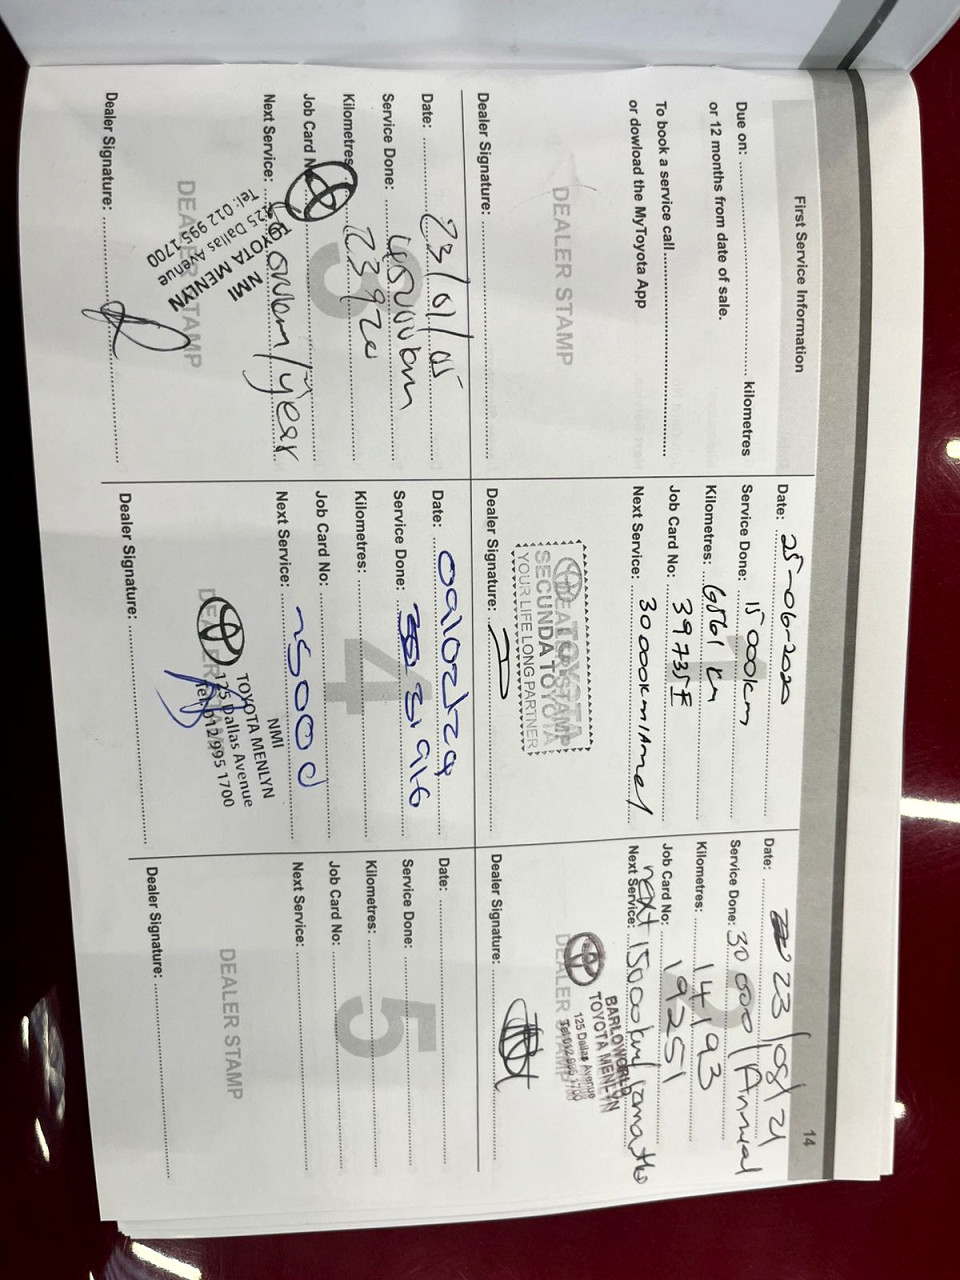 First Service Information
14
Due on: kilometres
or 12 months from date of sale.
To book a service call
or dowload the MyToyota App
DEALER STAMP
Dealer Signature:
1
Date: 25-06-2020
Service Done: 15 000km
Kilometres: 6861 km
Job Card No: 39735
Next Service: 30 000km/Annel
DEALER STAMP
TOYOTA
SECUNDA TOYOTA
YOUR LIFE LONG PARTNER
Dealer Signature:
2
Date: 23/08/21
Service Done: 30 000/Annual
Kilometres: 14193
Job Card No: 19251
Next Service: next 15000km/12months
BARLOWORLD
TOYOTA MENLYN
125 Dallas Avenue
Tel: 012 995 1700
DEALER STAMP
Dealer Signature:
3
Date: 23/01/
Service Done: 45000km
Kilometres:
Job Card No:
Next Service: /year
NMI
TOYOTA MENLYN
125 Dallas Avenue
Tel: 012 995 1700
DEALER STAMP
Dealer Signature:
4
Date:
Service Done: 31916
Kilometres:
Job Card No:
Next Service:
NMI
TOYOTA MENLYN
125 Dallas Avenue
Tel: 012 995 1700
Dealer Signature:
5
Date:
Service Done:
Kilometres:
Job Card No:
Next Service:
DEALER STAMP
Dealer Signature: